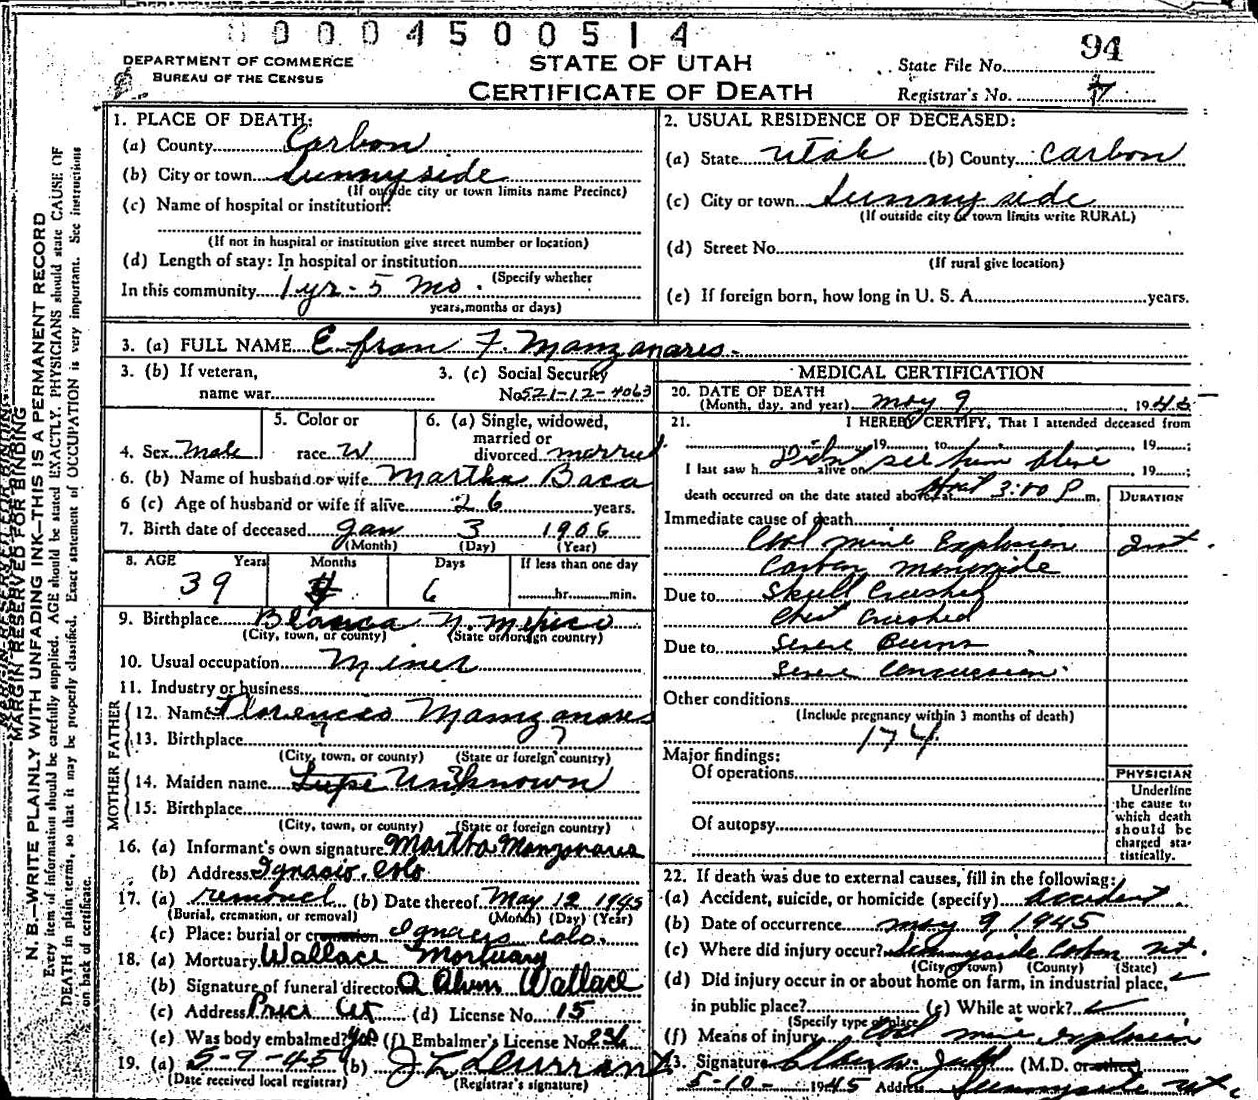 0004500514
94
DEPARTMENT OF COMMERCE
BUREAU OF THE CENSUS
STATE OF UTAH
CERTIFICATE OF DEATH
State File No.
Registrar's No. 7
1. PLACE OF DEATH:
(a) County Carbon
(b) City or town Sunnyside
(If outside city or town limits name Precinct)
(c) Name of hospital or institution:
(If not in hospital or institution give street number or location)
(d) Length of stay: In hospital or institution
(Specify whether
In this community 1 yr - 5 mo.
years, months or days)
2. USUAL RESIDENCE OF DECEASED:
(a) State Utah (b) County Carbon
(c) City or town Sunnyside
(If outside city or town limits write RURAL)
(d) Street No.
(If rural give location)
(e) If foreign born, how long in U. S. A. years.
3. (a) FULL NAME Efran F. Manzanares
3. (b) If veteran,
name war
3. (c) Social Security
No. 521-12-4063
4. Sex Male
5. Color or
race W
6. (a) Single, widowed,
married or
divorced married
6. (b) Name of husband or wife Martha Baca
6 (c) Age of husband or wife if alive 26 years.
7. Birth date of deceased Jan 3 1906
(Month) (Day) (Year)
8. AGE Years Months Days If less than one day
39 4 6 hr. min.
9. Birthplace Blanca N. Mexico
(City, town, or county) (State or foreign country)
10. Usual occupation Miner
11. Industry or business
FATHER
12. Name Florencio Manzanares
13. Birthplace ? ?
(City, town, or county) (State or foreign country)
MOTHER
14. Maiden name Lupe Unknown
15. Birthplace
(City, town, or county) (State or foreign country)
16. (a) Informant's own signature Martha Manzanares
(b) Address Ignasio, Colo
17. (a) removel (b) Date thereof May 12 1945
(Burial, cremation, or removal) (Month) (Day) (Year)
(c) Place: burial or cremation Ignacio Colo.
18. (a) Mortuary Wallace Mortuary
(b) Signature of funeral director A Alvin Wallace
(c) Address Price Ut (d) License No. 15
(e) Was body embalmed? yes (f) Embalmer's License No. 231
19. (a) 5-9-45 (b) J L Durrant
(Date received local registrar) (Registrar's signature)
MEDICAL CERTIFICATION
20. DATE OF DEATH
(Month, day, and year) May 9, 1945
21. I HEREBY CERTIFY, That I attended deceased from
19 to 19 ;
Didn't see him alive
I last saw h alive on 19 ;
death occurred on the date stated above, at 3:00 P m.
DURATION
Immediate cause of death
Coal mine Explosion Inst.
Carbon monoxide
Due to Skull Crushed
Chest Crushed
Due to Severe Burns
Severe Concussion
Other conditions
(Include pregnancy within 3 months of death)
174
Major findings:
Of operations
Of autopsy
PHYSICIAN
Underline
the cause to
which death
should be
charged sta-
tistically.
22. If death was due to external causes, fill in the following:
(a) Accident, suicide, or homicide (specify) Accident
(b) Date of occurrence May 9, 1945
(c) Where did injury occur? Sunnyside Carbon Ut.
(City or town) (County) (State)
(d) Did injury occur in or about home on farm, in industrial place, ✓
in public place? (e) While at work? ✓
(Specify type of place)
(f) Means of injury Coal mine explosion
23. Signature (M.D. or other)
5-10- 1945 Address Sunnyside Ut.
MARGIN RESERVED FOR BINDING
N. B.—WRITE PLAINLY WITH UNFADING INK—THIS IS A PERMANENT RECORD
Every item of information should be carefully supplied. AGE should be stated EXACTLY. PHYSICIANS should state CAUSE OF
DEATH in plain terms, so that it may be properly classified. Exact statement of OCCUPATION is very important. See instructions
on back of certificate.